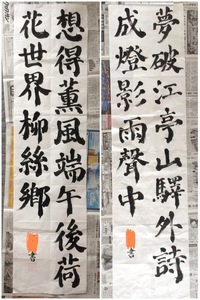 夢破江亭山驛外詩
成燈影雨聲中
書
想得薰風端午後荷
花世界柳絲鄉
書